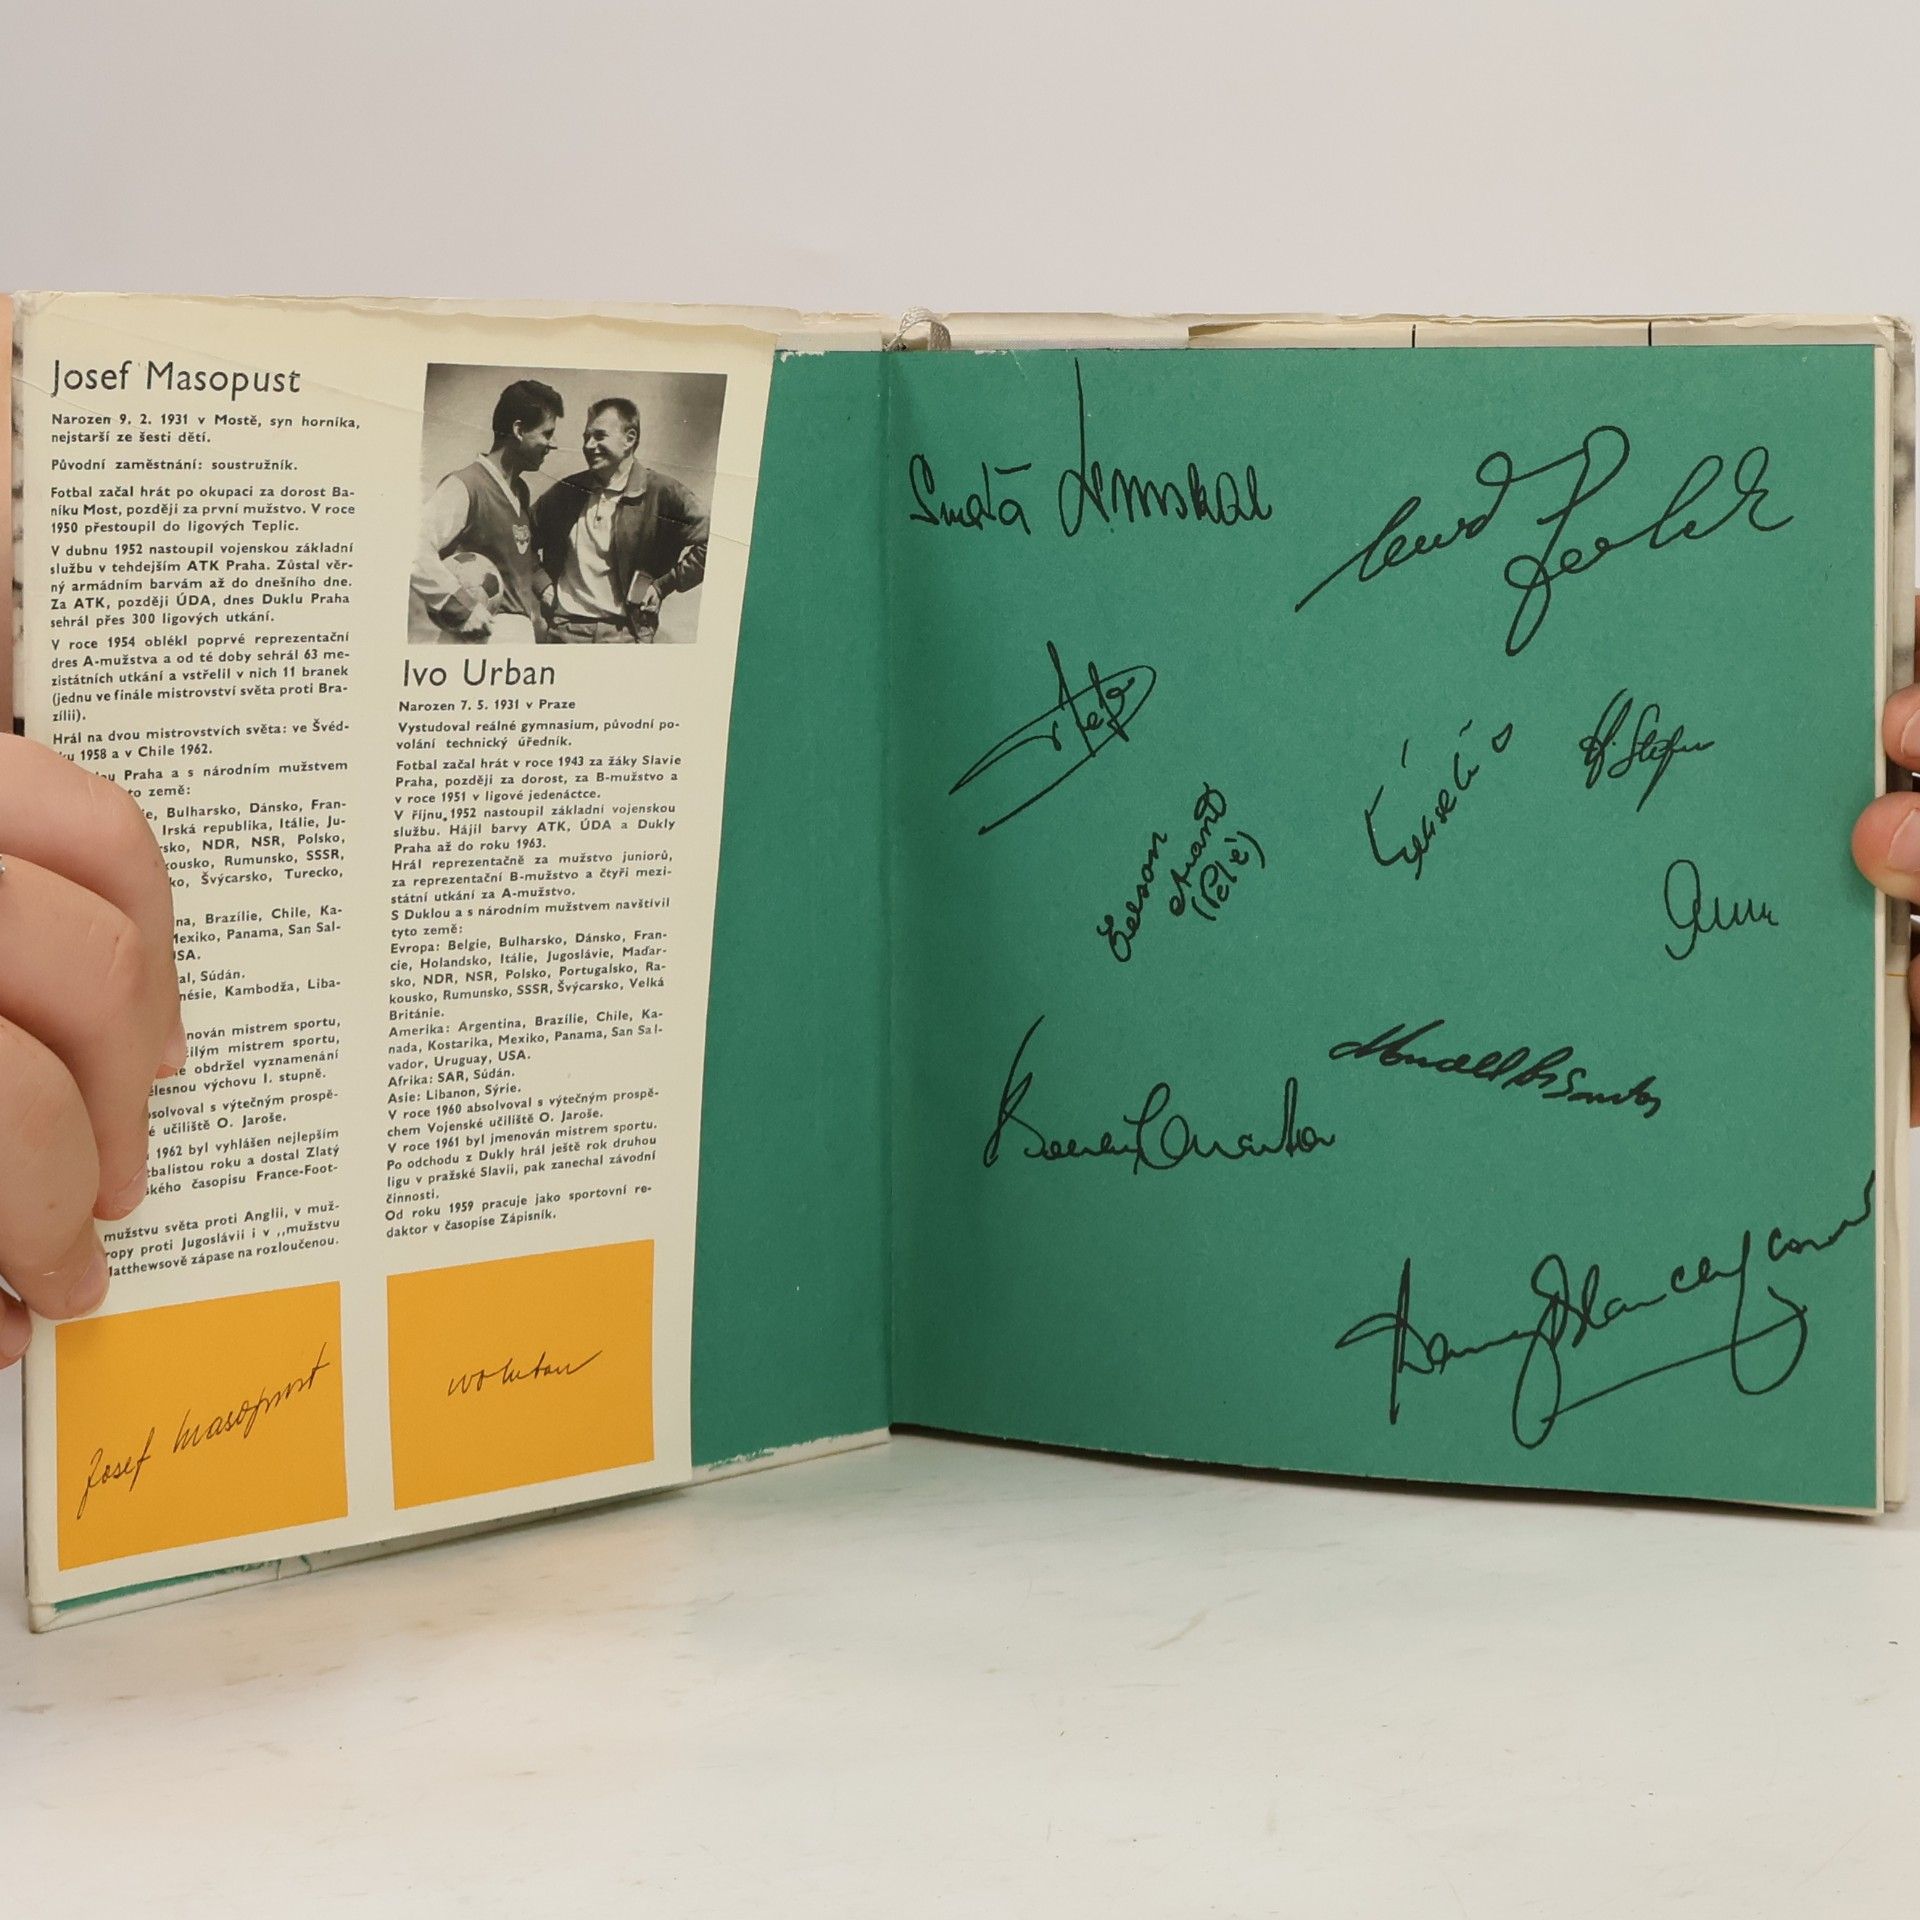 Josef Masopust
Narozen 9. 2. 1931 v Mostě, syn horníka,
nejstarší ze šesti dětí.
Původní zaměstnání: soustružník.
Fotbal začal hrát po okupaci za dorost Ba-
níku Most, později za první mužstvo. V roce
1950 přestoupil do ligových Teplic.
V dubnu 1952 nastoupil vojenskou základní
službu v tehdejším ATK Praha. Zůstal věr-
ný armádním barvám až do dnešního dne.
Za ATK, později ÚDA, dnes Duklu Praha
sehrál přes 300 ligových utkání.
V roce 1954 oblékl poprvé reprezentační
dres A-mužstva a od té doby sehrál 63 me-
zistátních utkání a vstřelil v nich 11 branek
(jednu ve finále mistrovství světa proti Bra-
zílii).
Hrál na dvou mistrovstvích světa: ve Švéd-
ku 1958 a v Chile 1962.
Praha a s národním mužstvem
to země:
Bulharsko, Dánsko, Fran-
Irská republika, Itálie, Ju-
rsko, NDR, NSR, Polsko,
kousko, Rumunsko, SSSR,
ko, Švýcarsko, Turecko,
na, Brazílie, Chile, Ka-
Mexiko, Panama, San Sal-
USA.
al, Súdán.
nésie, Kambodža, Liba-
nován mistrem sportu,
žilým mistrem sportu,
obdržel vyznamenání
ělesnou výchovu I. stupně.
bsolvoval s výtečným prospě-
é učiliště O. Jaroše.
1962 byl vyhlášen nejlepším
tbalistou roku a dostal Zlatý
ského časopisu France-Foot-
mužstvu světa proti Anglii, v muž-
ropy proti Jugoslávii i v „mužstvu
Matthewsově zápase na rozloučenou.
Josef Masopust
Ivo Urban
Narozen 7. 5. 1931 v Praze
Vystudoval reálné gymnasium, původní po-
volání technický úředník.
Fotbal začal hrát v roce 1943 za žáky Slavie
Praha, později za dorost, za B-mužstvo a
v roce 1951 v ligové jedenáctce.
V říjnu 1952 nastoupil základní vojenskou
službu. Hájil barvy ATK, ÚDA a Dukly
Praha až do roku 1963.
Hrál reprezentačně za mužstvo juniorů,
za reprezentační B-mužstvo a čtyři mezi-
státní utkání za A-mužstvo.
S Duklou a s národním mužstvem navštívil
tyto země:
Evropa: Belgie, Bulharsko, Dánsko, Fran-
cie, Holandsko, Itálie, Jugoslávie, Maďar-
sko, NDR, NSR, Polsko, Portugalsko, Ra-
kousko, Rumunsko, SSSR, Švýcarsko, Velká
Británie.
Amerika: Argentina, Brazílie, Chile, Ka-
nada, Kostarika, Mexiko, Panama, San Sal-
vador, Uruguay, USA.
Afrika: SAR, Súdán.
Asie: Libanon, Sýrie.
V roce 1960 absolvoval s výtečným prospě-
chem Vojenské učiliště O. Jaroše.
V roce 1961 byl jmenován mistrem sportu.
Po odchodu z Dukly hrál ještě rok druhou
ligu v pražské Slavii, pak zanechal závodní
činnosti.
Od roku 1959 pracuje jako sportovní re-
daktor v časopise Zápisník.
Ivo Urban
Edson
(Pelé)
Danny Blanchflower